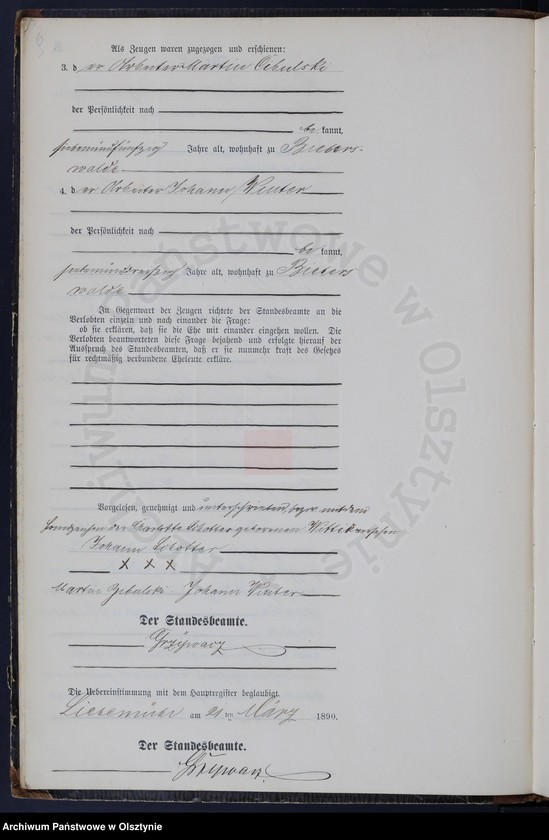 Als Zeugen waren zugezogen und erschienen:
3. d er Arbeiter Martin Cibulski
der Persönlichkeit nach
be kannt,
siebenundfünfzig Jahre alt, wohnhaft zu Biebers-
walde
4. d er Arbeiter Johann Winter
der Persönlichkeit nach
be kannt,
Jahre alt, wohnhaft zu Biebers
walde
In Gegenwart der Zeugen richtete der Standesbeamte an die
Verlobten einzeln und nach einander die Frage:
ob sie erklären, daß sie die Ehe mit einander eingehen wollen. Die
Verlobten beantworteten diese Frage bejahend und erfolgte hierauf der
Ausspruch des Standesbeamten, daß er sie nunmehr kraft des Gesetzes
für rechtmäßig verbundene Eheleute erkläre.
Vorgelesen, genehmigt und unterschrieben, bezw. mit dem
Handzeichen der Charlotte Schotter geborenen versehen
Johann Schotter
x x x
Martin Zebulski Johann Winter
Der Standesbeamte.
Grzywacz
Die Uebereinstimmung mit dem Hauptregister beglaubigt.
Liebemühl am 21 ten März 1890.
Der Standesbeamte.
Grzywacz
Archiwum Państwowe w Olsztynie
Archiwum Państwowe w Olsztynie